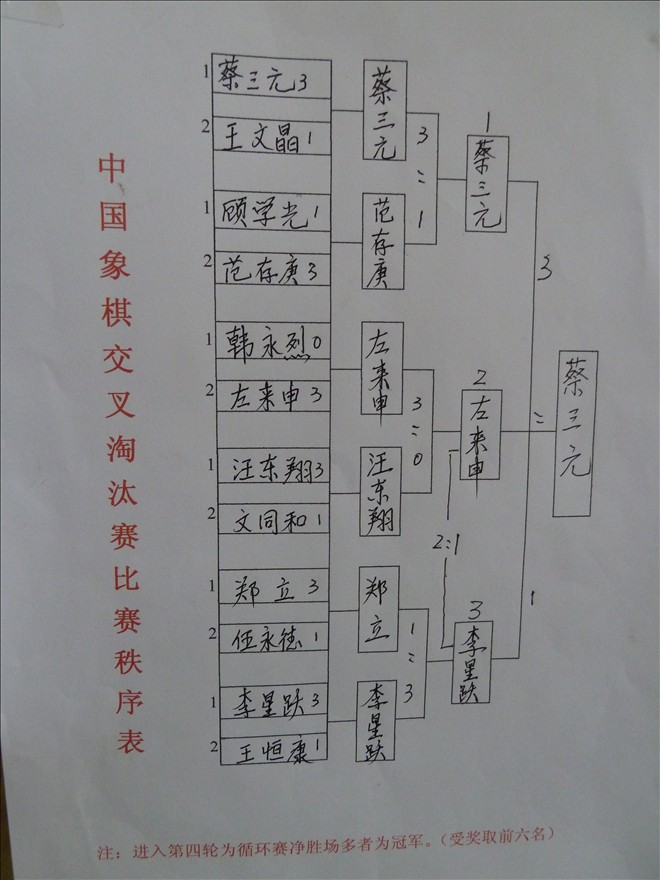 中国象棋交叉淘汰赛比赛秩序表
1 蔡三元 3
2 王文晶 1
1 顾学光 1
2 范存庚 3
1 韩永烈 0
2 左来申 3
1 汪东翔 3
2 文同和 1
1 郑立 3
2 伍永德 1
1 李星跃 3
2 王恒康 1
蔡三元
3
=
1
范存庚
左来申
3
=
0
汪东翔
郑立
1
=
3
李星跃
1
蔡三元
2
左来申
2:1
3
李星跃
3
=
1
蔡三元
注：进入第四轮为循环赛净胜场多者为冠军。（受奖取前六名）